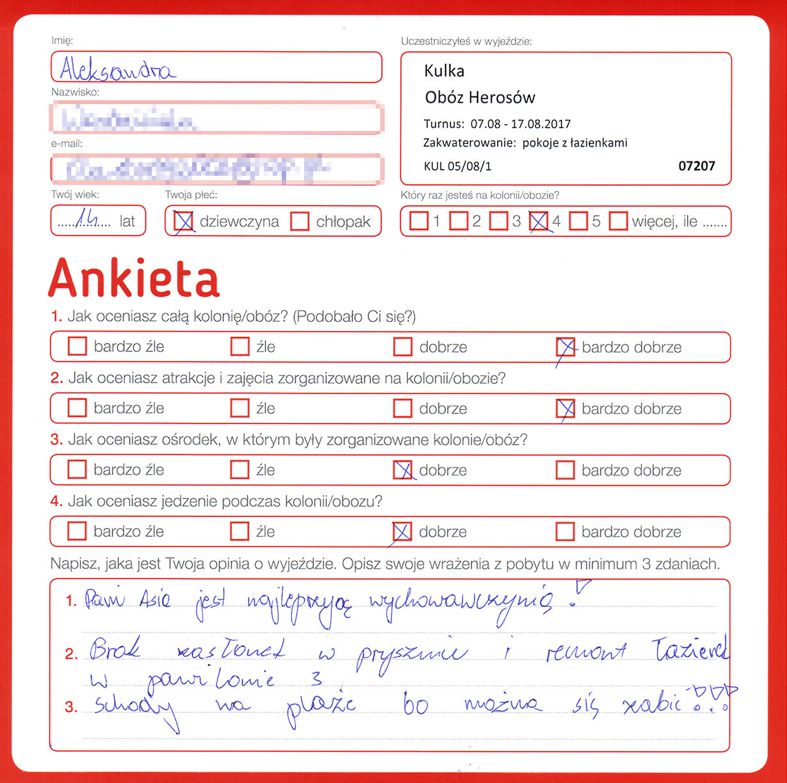 Imię:
Aleksandra
Nazwisko:
e-mail:
Twój wiek:
14 lat
Twoja płeć:
dziewczyna chłopak
Uczestniczyłeś w wyjeździe:
Kulka
Obóz Herosów
Turnus: 07.08 - 17.08.2017
Zakwaterowanie: pokoje z łazienkami
KUL 05/08/1 07207
Który raz jesteś na kolonii/obozie?
1 2 3 4 5 więcej, ile .......
Ankieta
1. Jak oceniasz całą kolonię/obóz? (Podobało Ci się?)
bardzo źle źle dobrze bardzo dobrze
2. Jak oceniasz atrakcje i zajęcia zorganizowane na kolonii/obozie?
bardzo źle źle dobrze bardzo dobrze
3. Jak oceniasz ośrodek, w którym były zorganizowane kolonie/obóz?
bardzo źle źle dobrze bardzo dobrze
4. Jak oceniasz jedzenie podczas kolonii/obozu?
bardzo źle źle dobrze bardzo dobrze
Napisz, jaka jest Twoja opinia o wyjeździe. Opisz swoje wrażenia z pobytu w minimum 3 zdaniach.
1. Pani Asia jest najlepszyją wychowawczynią!
2. Brak zasłonek w prysznicu i remont łazienek
w pawilonie 3
3. schody na plażę bo można się zabić!!!